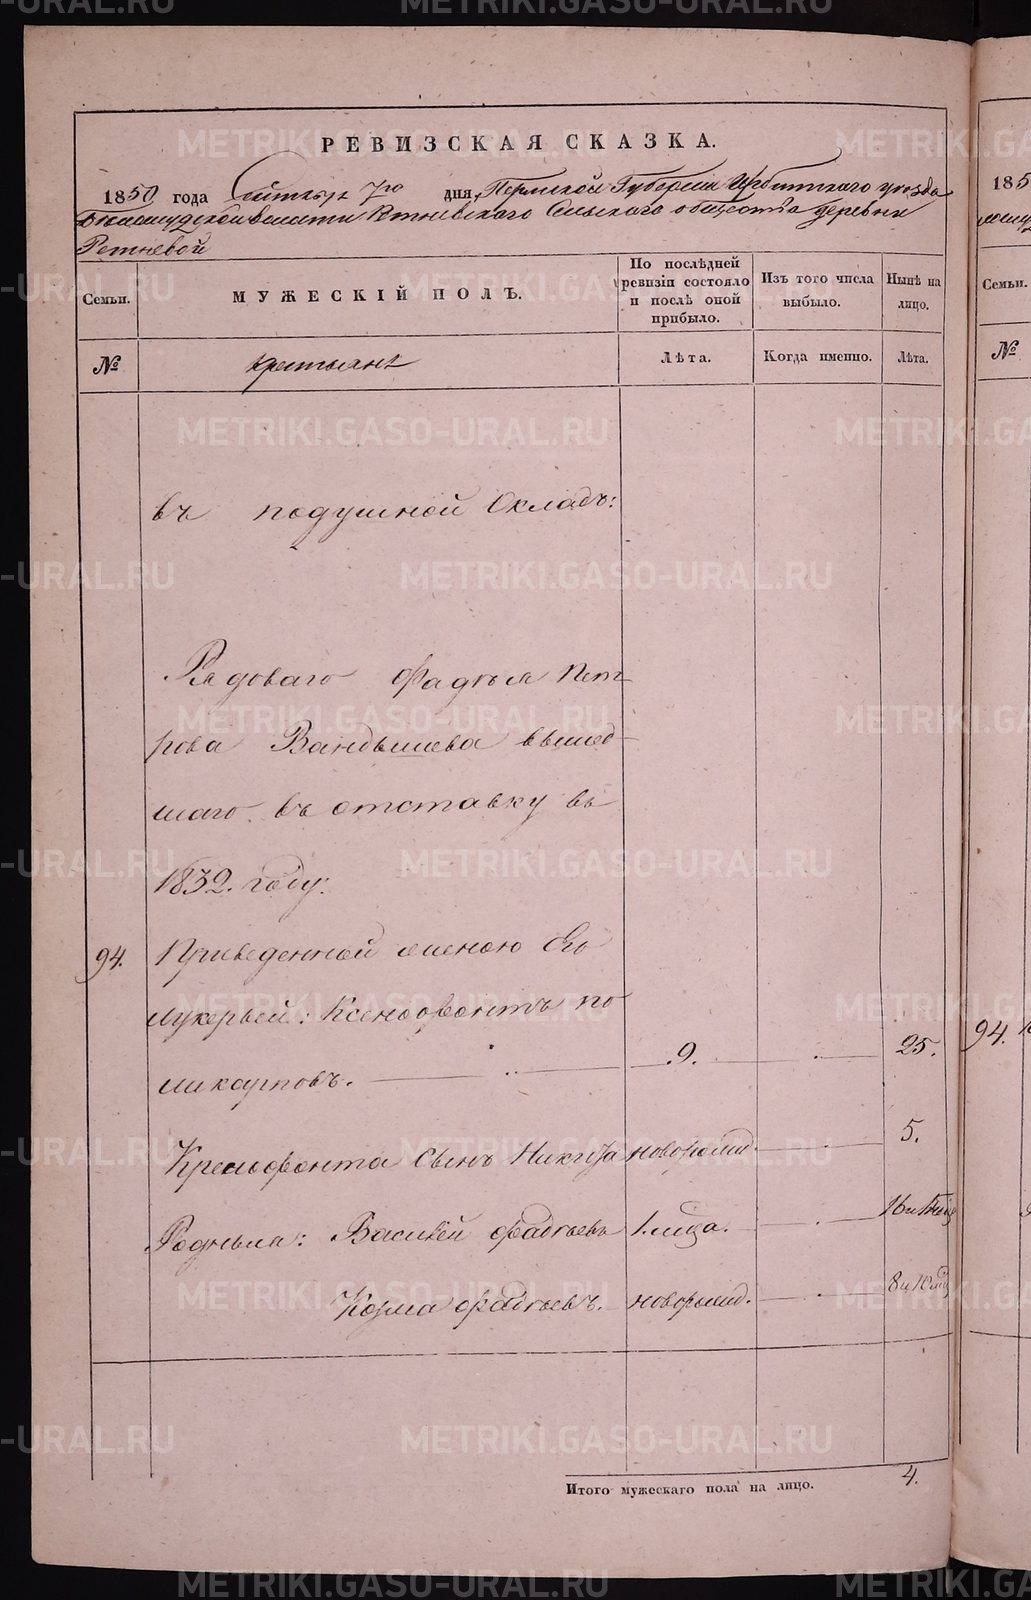 METRIKI.GASO-URAL.RU
РЕВИЗСКАЯ СКАЗКА.
1850 года Октября 7го дня, Пермской Губернии Ирбитскаго уезда
волости Сельскаго общества деревни
Ретневой
Семьи.
МУЖЕСКІЙ ПОЛЪ.
По послѣдней ревизіи состояло и послѣ оной прибыло.
Изъ того числа выбыло.
Нынѣ на лицо.
№
крестьяне
Лѣта.
Когда именно.
Лѣта.
въ подушной Окладъ:
Рядоваго Фадѣя Пет-
рова Вандышева вышед-
шаго въ отставку въ
1832. году:
94. Приведенной женою Его
Лукерьей: Ксенофонтъ По
ликарповъ. 9. 25.
Ксенофонта Сынъ Никита новорожд. 5.
Родныя: Василей Фадѣевъ 1. мѣся. 16
Козма Фадѣевъ. новорожд. 8 и 10 мѣ
Итого мужескаго пола на лицо. 4.
185
Семьи.
№
94.